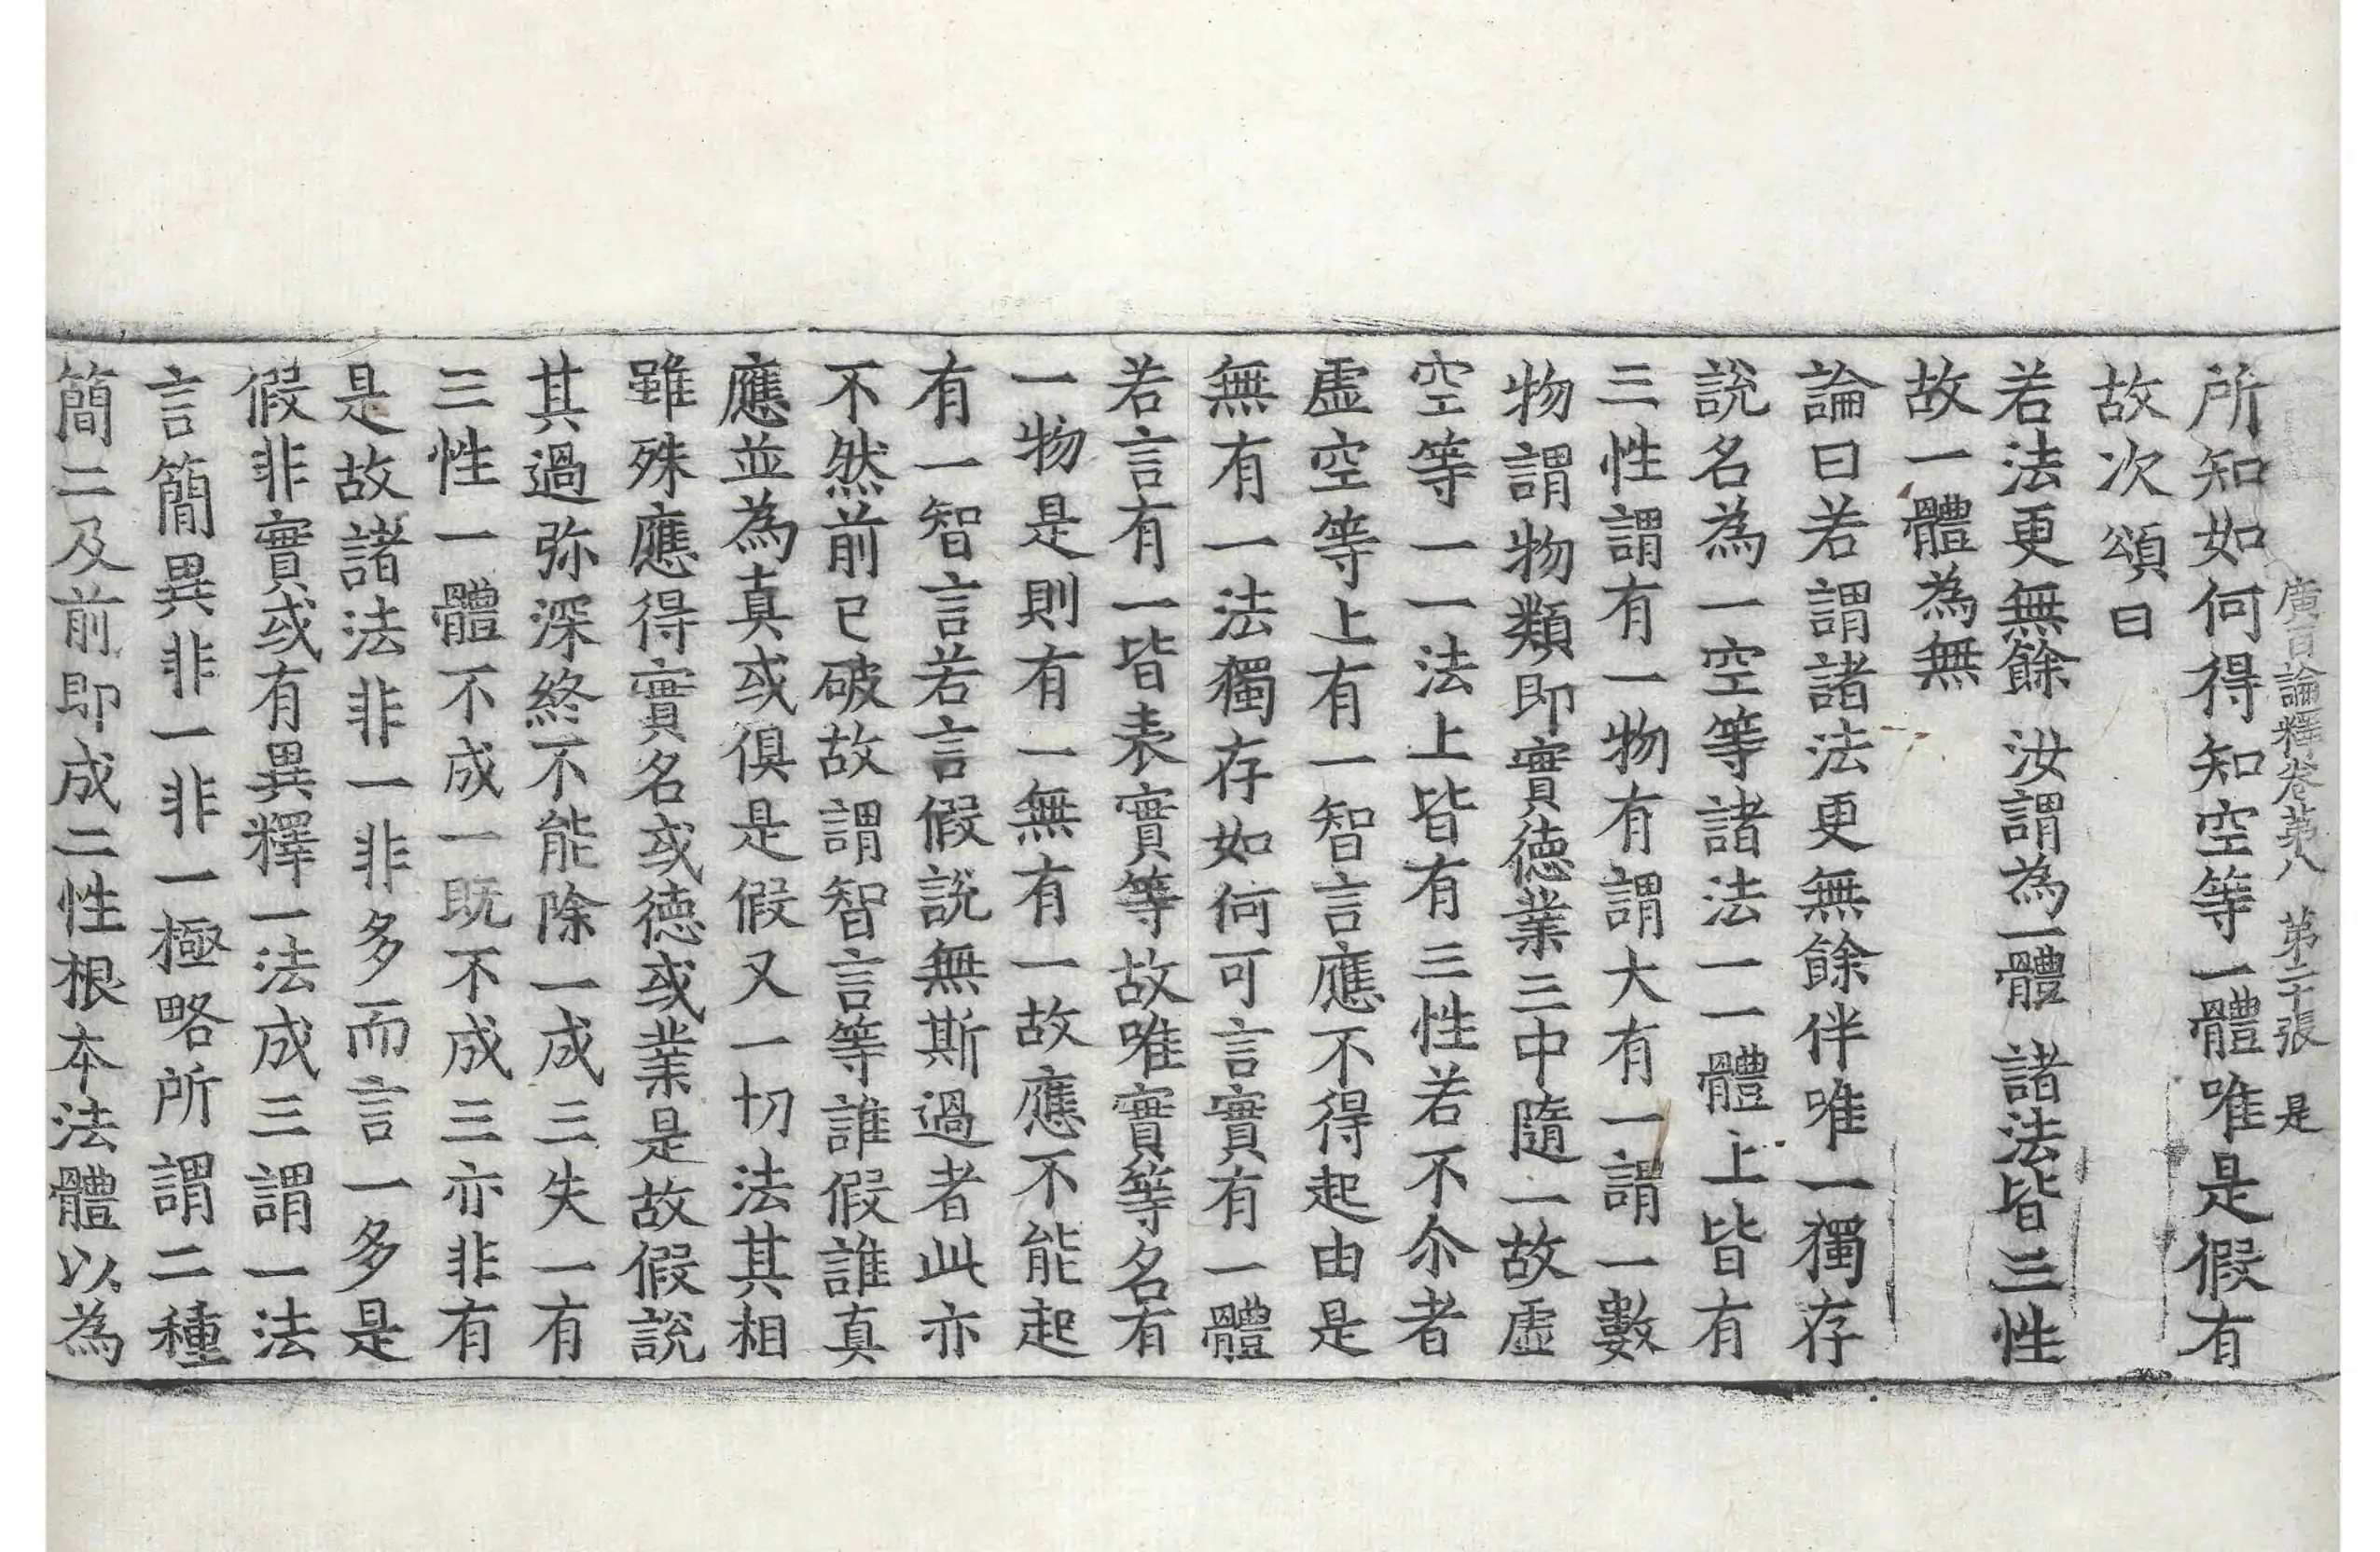 廣百論釋卷第八　第二十張　是
所知如何得知空等一體唯是假有
故次頌曰
若法更無餘　汝謂為一體　諸法皆三性
故一體為無
論曰若謂諸法更無餘伴唯一獨存
說名為一空等諸法一一體上皆有
三性謂有一物有謂大有一謂一數
物謂物類即實德業三中隨一故虛
空等一一法上皆有三性若不尒者
虛空等上有一智言應不得起由是
無有一法獨存如何可言實有一體
若言有一皆表實等故唯實等名有
一物是則有一無有一故應不能起
有一智言若言假說無斯過者此亦
不然前已破故謂智言等誰假誰真
應並為真或俱是假又一切法其相
雖殊應得實名或德或業是故假說
其過弥深終不能除一成三失一有
三性一體不成一既不成三亦非有
是故諸法非一非多而言一多是
假非實或有異釋一法成三謂一法
言簡異非一非一極略所謂二種
簡二及前即成二性根本法體以為